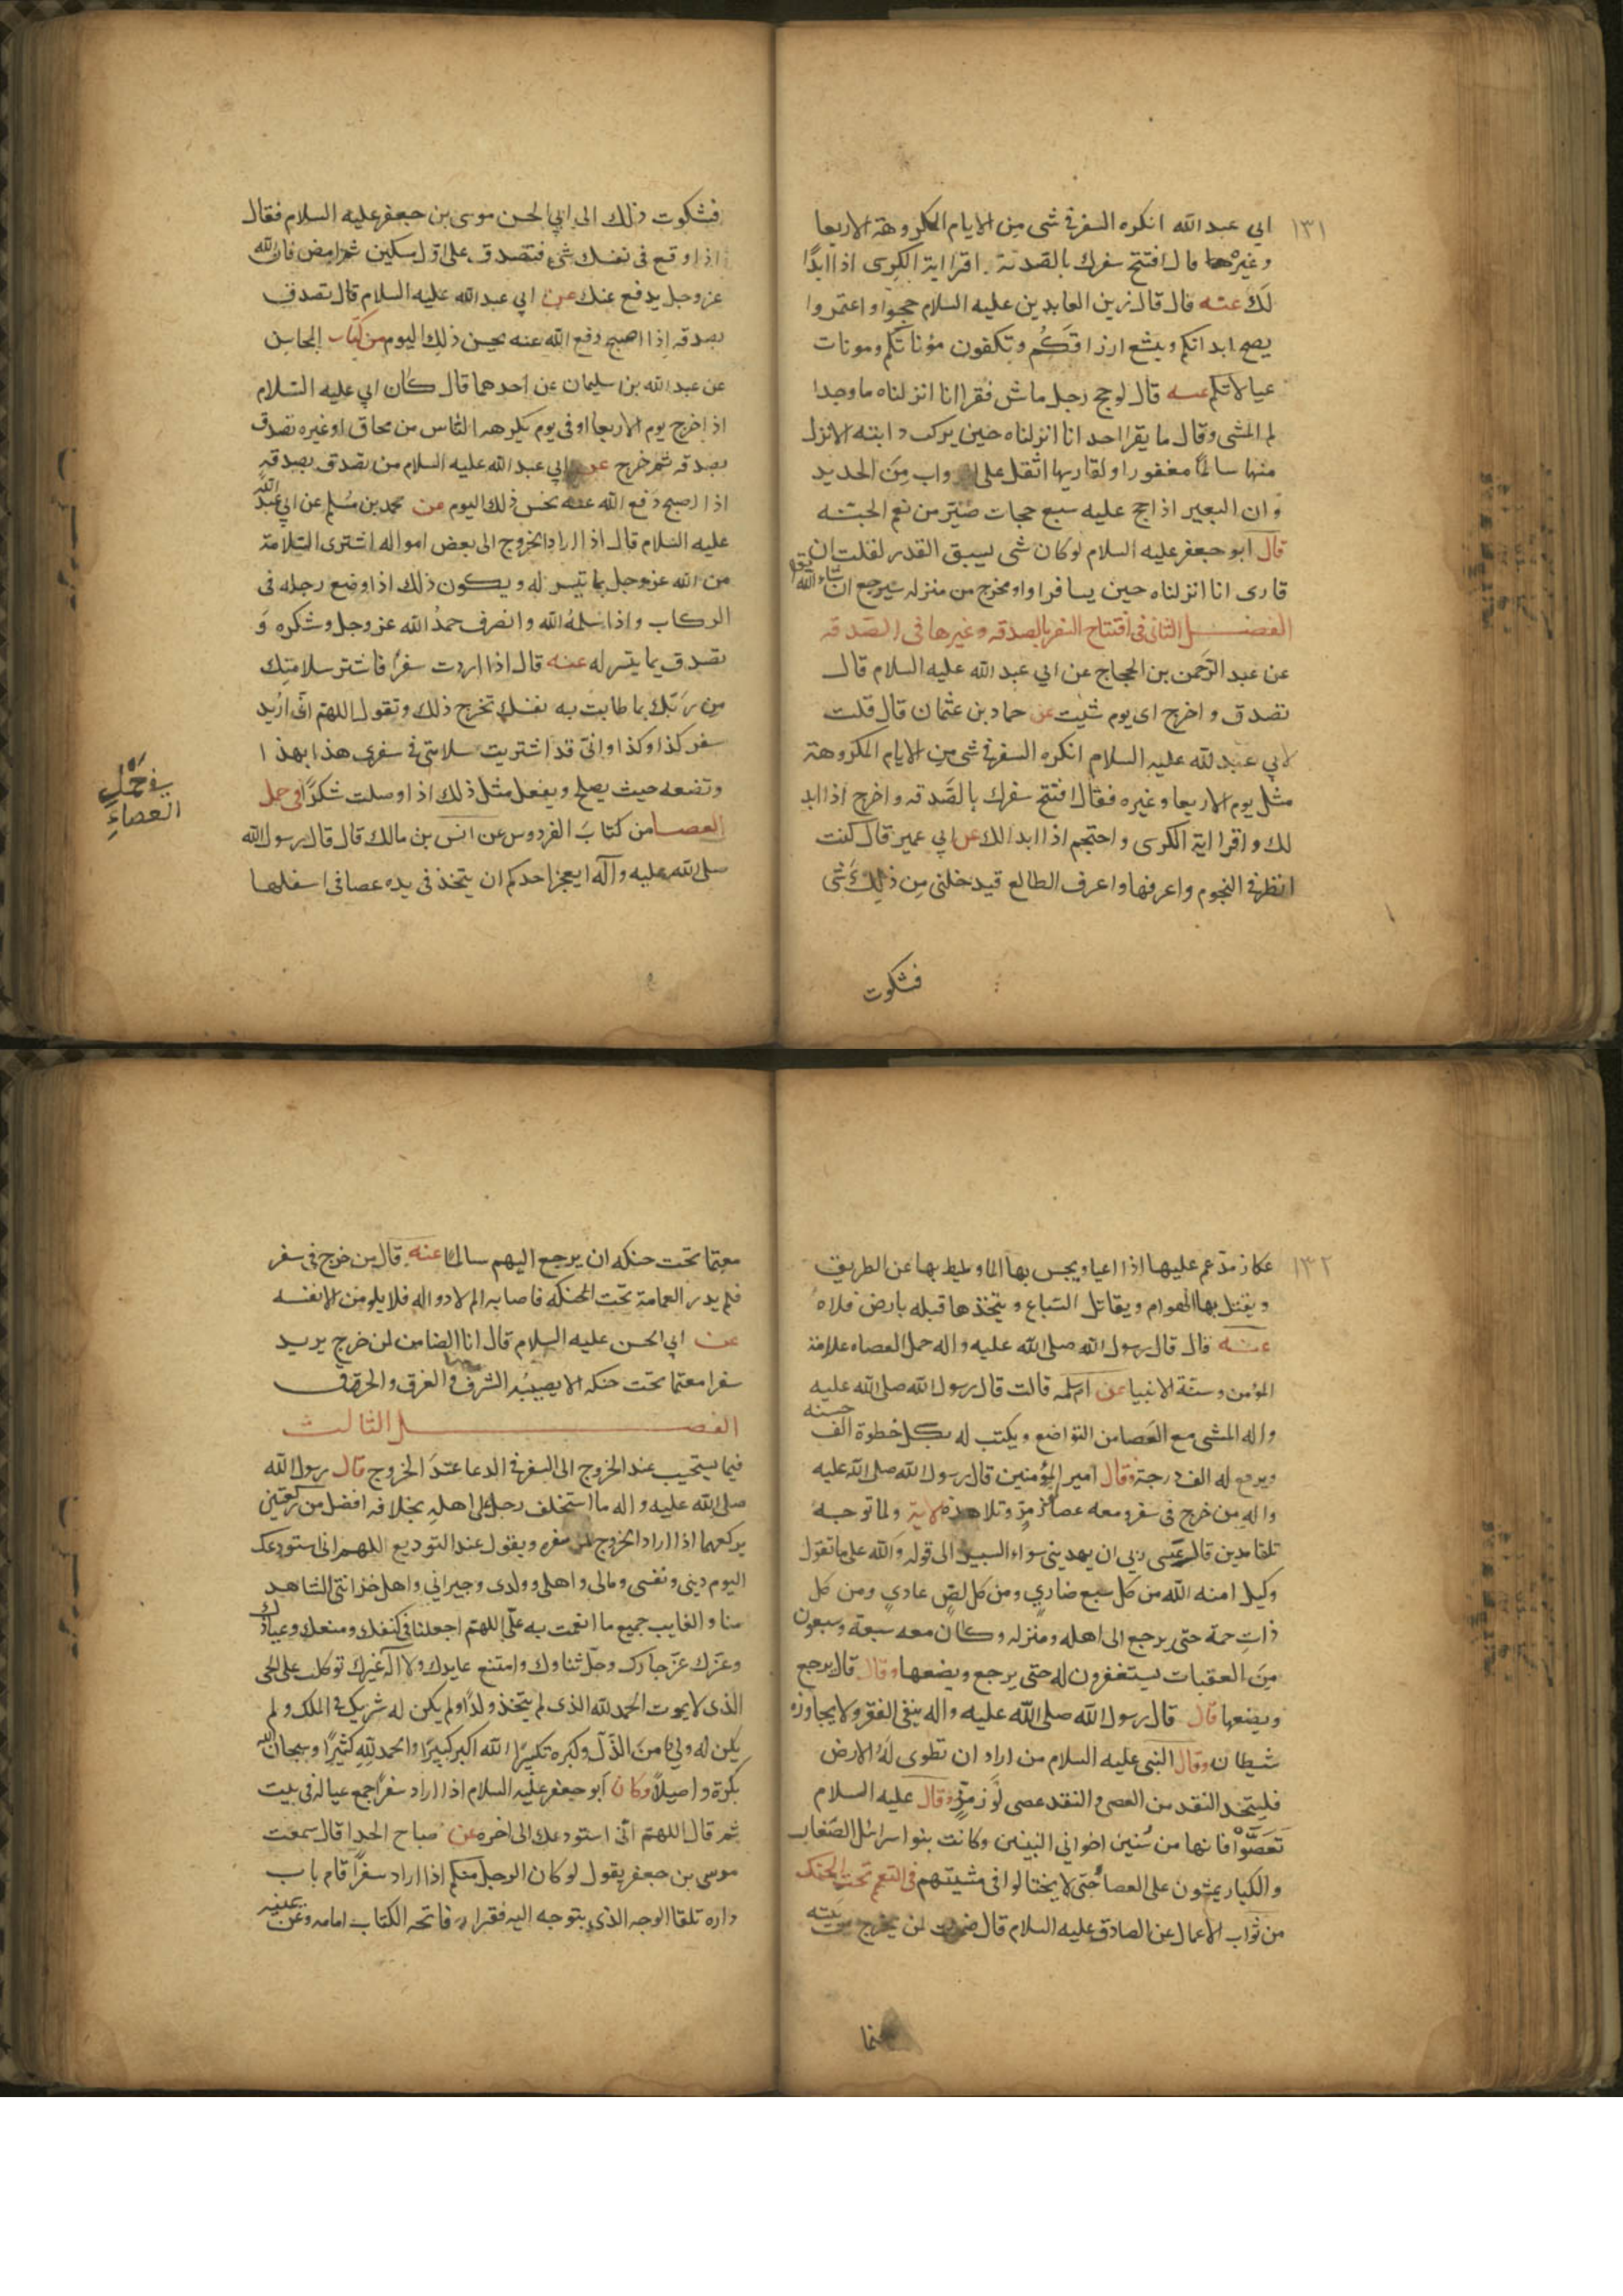 ١٣١
ابي عبد الله انكره السفر في شى من الايام المكروهة الاربعا
وغيرها قال افتتح سفرك بالصدقة. اقرا اية الكرسى اذا ابدًا
لَك عنه قال قال زين العابدين عليه السلام حجوا واعتمروا
يصح ابدانكم ويتسع ارزاقكم وتكفون مؤناتكم ومونات
عيالاتكم عنه قال لو حج رجل ماش فقرا انا انزلناه ما وجدا
لم المشى وقال ما يقرا احد انا انزلناه حين يركب دابته الا نزل
منها سالمًا مغفورا ولقاريها اثقل على الدواب مِنَ الحديد
وان البعير اذا حج عليه سبع حجات صُيّر من نعم الجنة
قال ابو جعفر عليه السلام لو كان شى ليسبق القدر لقلت ان
قارى انا انزلناه حين يسافر او يخرج من منزله سيرجع ان شاء الله
الفصــل الثانى فى افتتاح السفر بالصدقه وغيرها فى الصدقه
عن عبد الرحَمن بن الحجاج عن ابي عبد الله عليه السلام قال
تصدق واخرج اى يوم شئت عن حماد بن عثمان قال قلت
لابي عبد لله عليه السلام انكره السفر في شى من الايام المكروهة
مثل يوم الاربعا وغيره فقال افتتح سفرك بالصَّدقه واخرج اذا ابد
لك واقرا اية الكرسى واحتجم اذا ابدالك عن ابي عمير قال كنت
انظر في النجوم واعرفها واعرف الطالع فيدخلنى مِن ذلِكَ شى
فشكوت
فشكوت ذلك الى ابي الحسن موسى بن جعفر عليه السلام فقال
اذا وقع فى نفسك شى فتصدق على اول مسكين ثم امض فان الله
عز وجل يدفع عنك عن ابي عبد الله عليه السلام قال تصدق
بصدقه اِذا اصبح دفع الله عنه نحس ذلِك اليوم من كتاب المحاسِن
عن عبد الله بن سليمان عن احدهما قال كان ابي عليه السَّلام
اذا خرج يوم الاربعا او فى يوم يكرهه النَّاس من محاق اوغيره تصدق
بصدقه ثم خرج عن ابي عبد الله عليه السلام من تصدق بصدقه
اذا اصبح دَفع الله عنه نحس ذلك اليوم عن محمد بن مُسلم عن ابي عبد الله
عليه السَلام قال اذا اراد الخروج الى بعض امواله اشترى السَّلامة
من الله عز وجل بما تيسر له ويكون ذلك اذا وضع رجله فى
الركاب واذا سَلمهُ الله وانصرف حمدُ الله عز وجل وشكره وَ
تصدق بما يتسر له عنه قال اذا اردت سفرًا فاشتر سلامتِك
مِن رَبّك بما طابت به نفسك تخرج ذلك وتقول اللهمّ انّى ارُيد
سفر كذا وكذا وانى قد اشتريت سلامتى فى سفرى هذا بهذا
وتضعه حيث يصلح ويفعل مثل ذلك اذا وصلت شكرًا فى حمل
العصا من كتابَ الفردوس عن انس بن مالك قال قال رسول الله
صلى الله عليه وآله ايعجز احدكم ان يتخذ فى يده عصا فى اسفلها
في حَمْلِ
العصاءِ
١٣٢
عكاز مدّعم عليها اذا اعيا ويجس بها الما ويميط بها عن الطريق
ويقتل بها الهوام ويقاتل السّباع ويتخذها قبله بارض فلاه
عنه قال قال رسول الله صلى الله عليه واله حمل العصاء علامة
المؤمن وسنّة الانبيا عن ام سلمه قالت قال رسول الله صلى الله عليه
واله المشى مع العَصا من التواضع ويكتب له بكل خطوة الف حسنه
ويرفع له الف درجة وقال امير المؤمنين قال رسول الله صلى الله عليه
واله من خرج فى سفر ومعه عصا لوز مرّ وتلا هذه الاية ولما توجه
تلقا مدين قال عسى ربى ان يهدينى سواء السبيل الى قوله والله على ما نقول
وكيل امنه الله من كل سبع ضاري ومن كل لصّ عادي ومن كل
ذات حمة حتى يرجع الى اهله ومنزله وكان معه سبعة وسبعون
مِنَ المعقبات يستغفرون له حتى يرجع ويضعها وقال قال يرجع
ويضعها قال قال رسول الله صلى الله عليه واله ينفى الفقر ولا يجاوزه
شيطان وقال النبى عليه السلام من اراد ان تطوى لهُ الارض
فليتخد النقد من العصى والنقد عصى لوز مرّ وقال عليه السلام
تَعَصَّوْا فانها من سُنين اخواني النبيين وكانت بنوا سرائل الصّغار
والكبار يمشون على العصا حُتى لا يختالوا فى مشيتهم فى التعمم تحت الحنك
من ثواب الاعمال عن الصادق عليه السلام قال ضمنت لمن يخرج من بيته
معتما تحت حنكه ان يرجع اليهم سالمًا عنه قال من خرج فى سفر
فلم يدر العمامة تحت الحنكه فاصابه الم لا دواله فلا يلومن الا نفسه
عن ابي الحسن عليه السلام قال انا الضامن لمن خرج يريد
سفرا معتما تحت حنكه الا يصيبُه السَّرق والغرق والحرق
الفصــــــل الثالث
فيما يستحيب عند الخروج الى السفر في الدعا عندَ الخروج قال رسول الله
صلى الله عليه واله ما استخلف رجل على اهله بخلافه افضل من ركعتين
يركعهما اذا اراد الخروج الى سفره ويقول عند التوديع اللهم انى استودعك
اليوم دينى ونفسى ومالى واهلى وولدى وجيرانى واهل خزانتى الشاهد
منا والغايب جميع ما انعمت به علَّى اللهمّ اجعلنا فى كنفك ومنعك وعياذك
وعزّك عَزّ جارك وجلّ ثناوك وامتنع عايدك ولا اله غيرك توكلت على الحى
الّذى لا يموت الحمد لله الذى لم يتخذ ولدًا ولم يكن له شريك فى الملك ولم
يكن له ولي من الذّل وكبره تكبيرًا الله اكبر كبيرًا والحمد للهِ كثيرًا وسبحان الله
بكرة واصيلاً وكان ابو جعفر عليه السلام اذا اراد سفرًا جمع عياله فى بيت
ثم قال اللهمّ انّى استودعك الى اخره عن صباح الحدا قال سمعت
موسى بن جعفر يقول لو كان الرجل منكم اذا اراد سفرًا قام باب
داره تلقا الوجه الذى يتوجه اليه فقرا فاتحه الكتاب امامه وعن